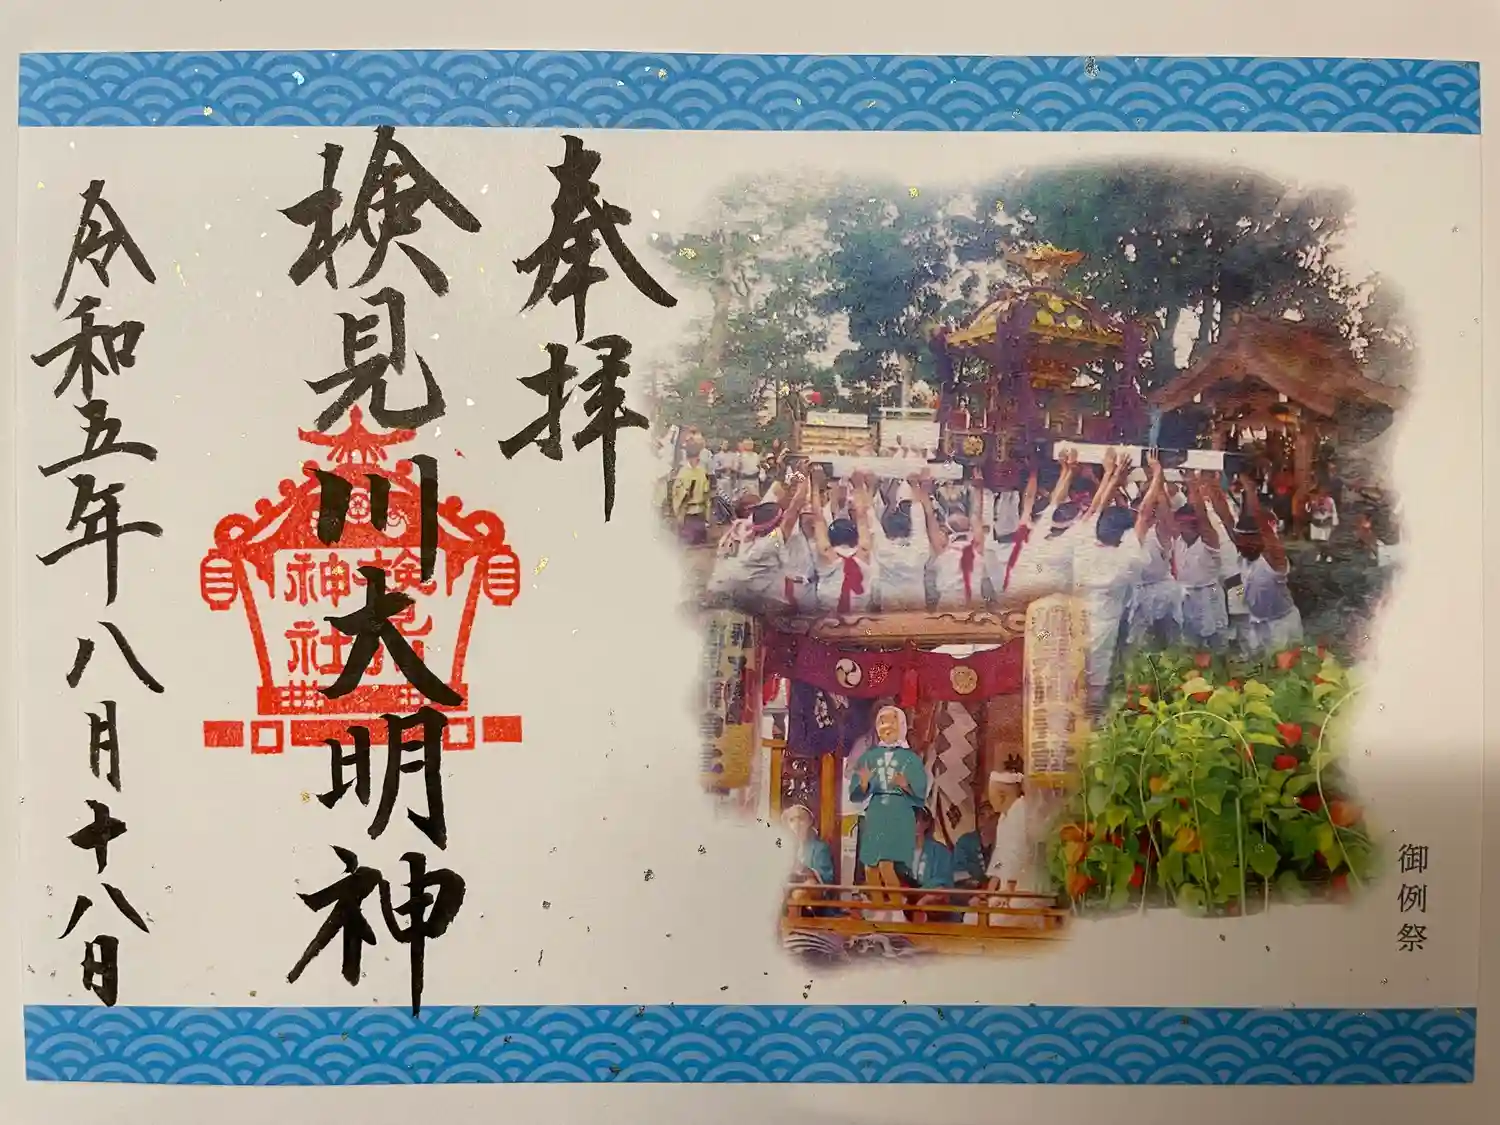 御例祭
奉拝
検見川大明神
検見川
神社
令和五年八月十八日